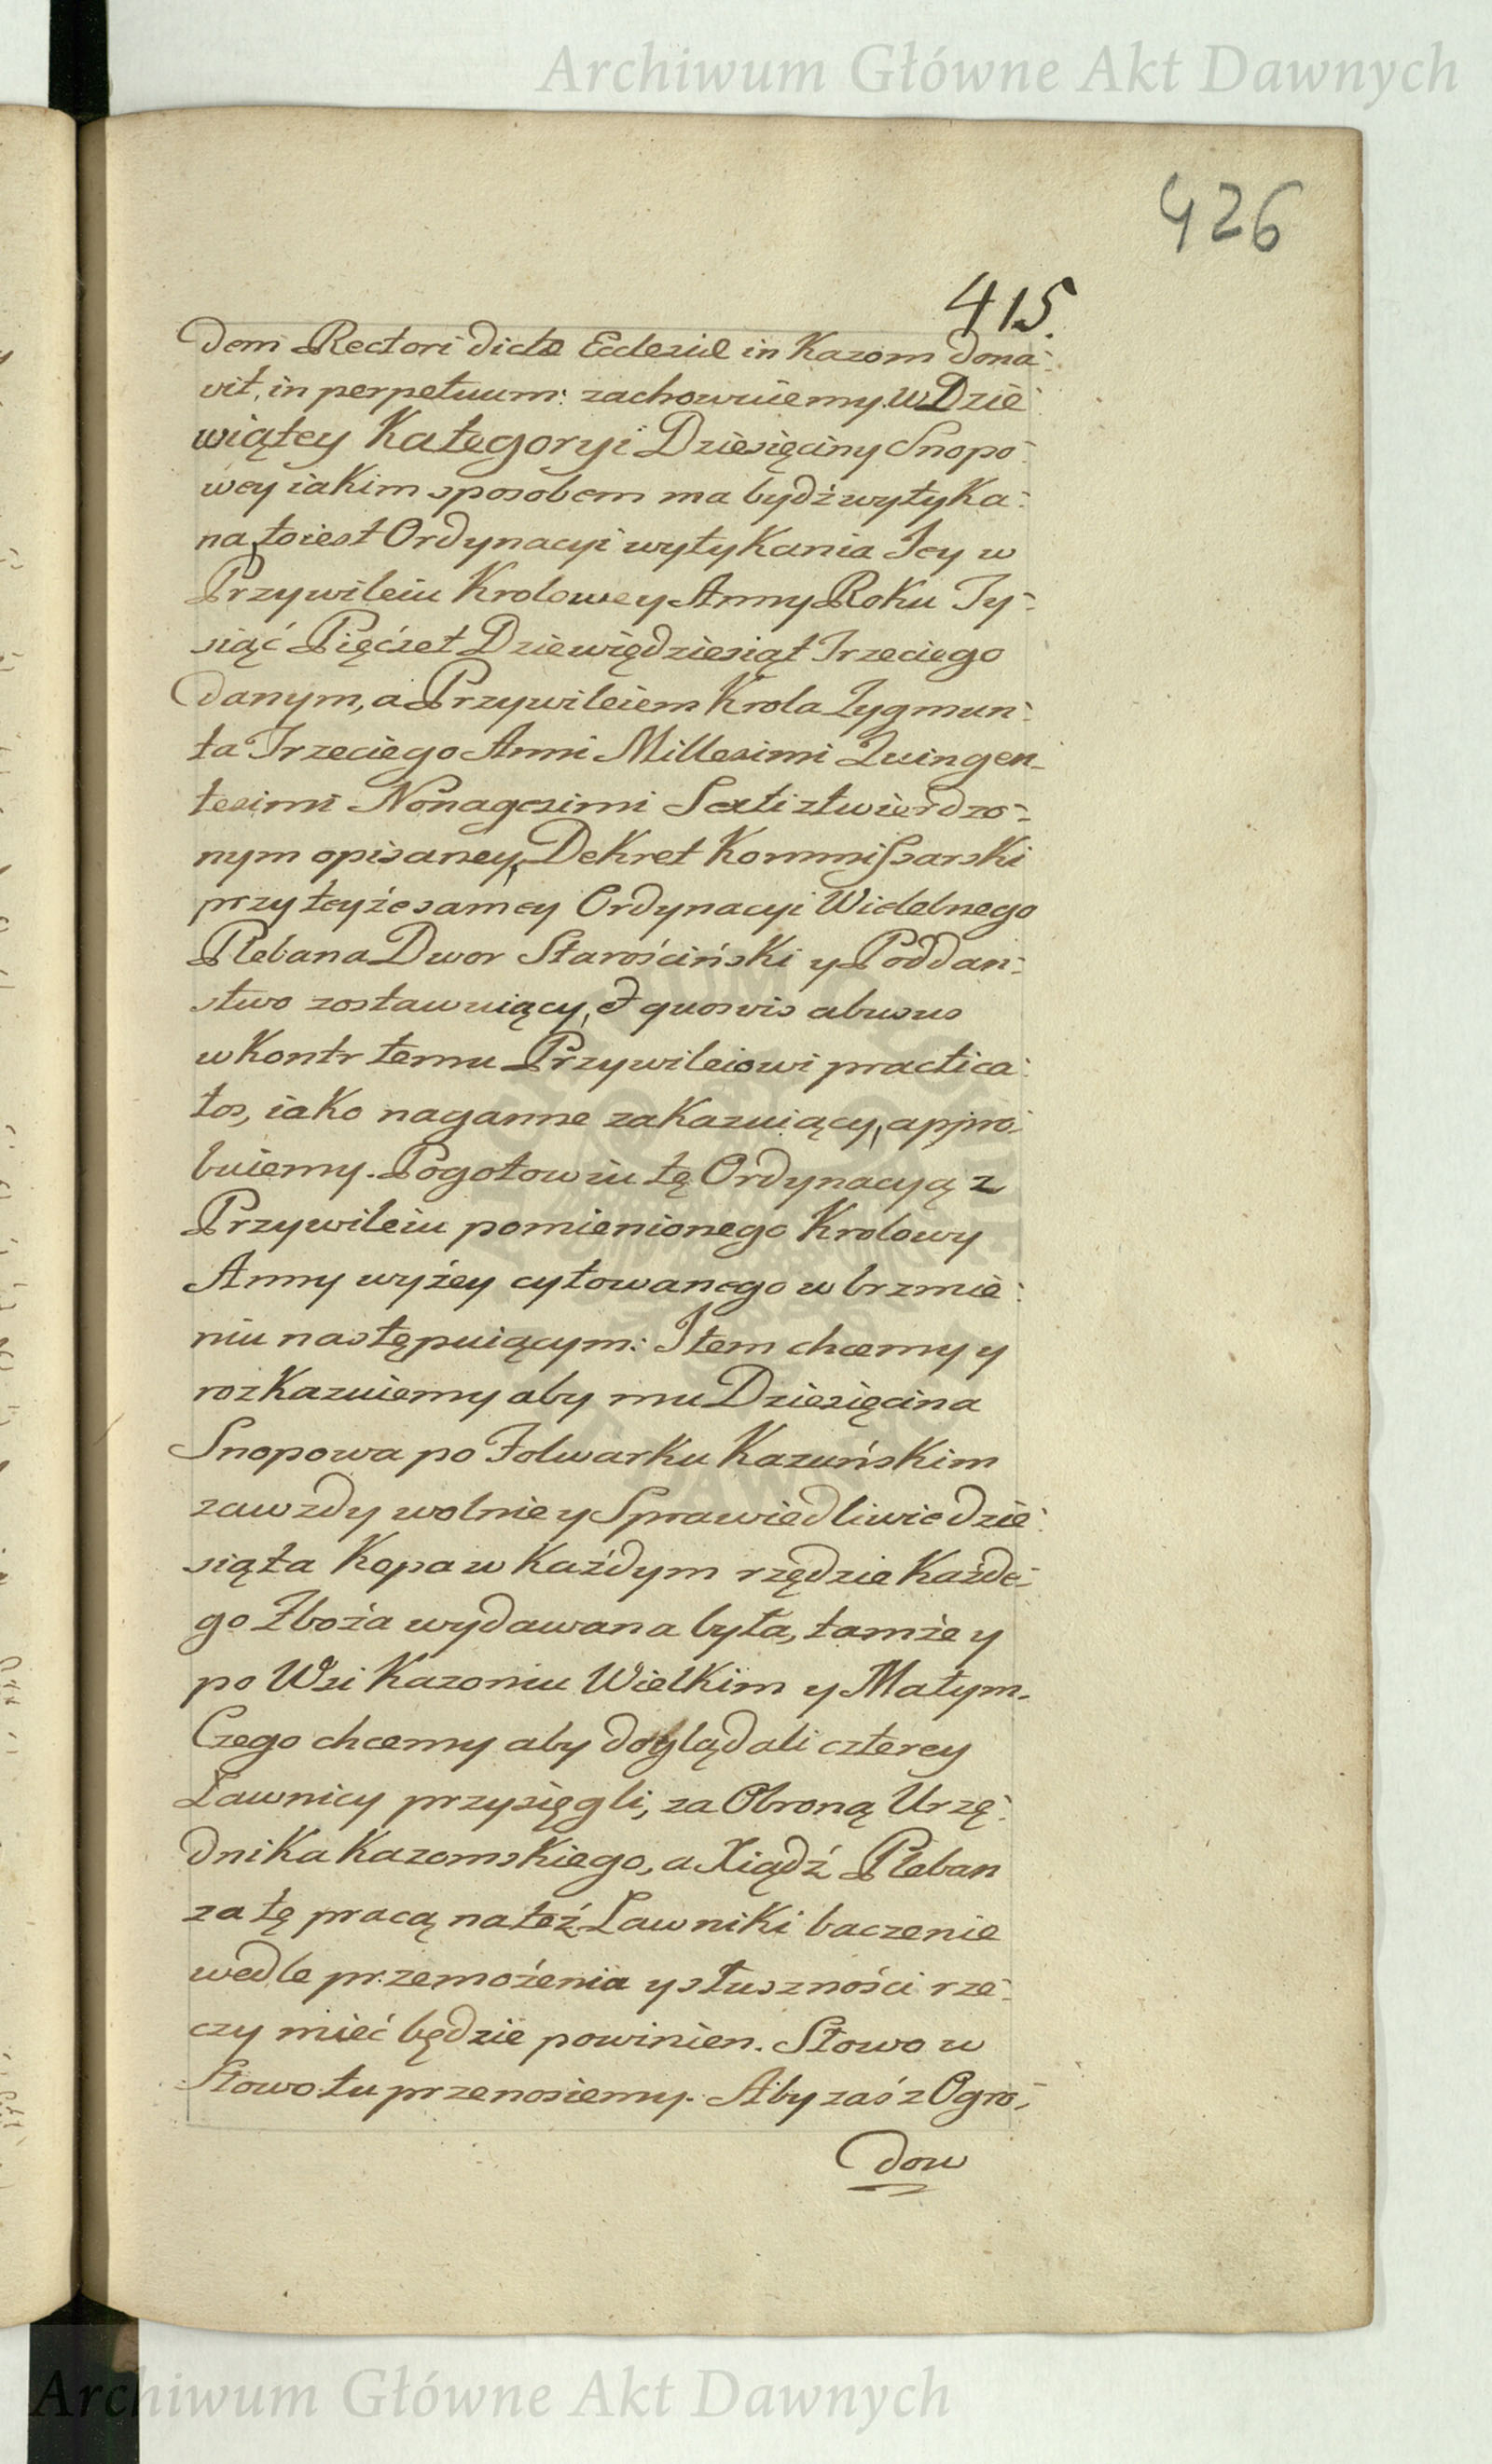 Archiwum Główne Akt Dawnych
426
415.
dem Rectori dictæ Ecclesiæ in Kazom dona-
vit, in perpetuum: zachowuiemy. W Dzie-
wiątey Kategoryi Dziesięciny Snopo-
wey iakim sposobem ma bydź wytyka-
na, toiest Ordynacyi wytykania Jey w
Przywileiu Krolowey Anny Roku Ty-
siąć Pięćset Dziewiędziesiąt Trzeciego
danym, a Przywileiem Krola Zygmun-
ta Trzeciego Anni Millesimi Quingen-
tesimi Nonagesimi Sexti ztwierdzo-
nym opisaney, Dekret Kommissarski
przy teyże samey Ordynacyi Wielebnego
Plebana Dwor Starościński y Poddań-
stwo zostawuiący, & quosvis abusus
wkontr temu Przywileiowi practica-
tos, iako naganne zakazuiący, appro-
buiemy. Pogotowiu tę Ordynacyą z
Przywileiu pomienionego Krolowy
Anny wyżey cytowanego w brzmie-
niu następuiącym: Item chcemy y
rozkazuiemy aby mu Dziesięcina
Snopowa po Folwarku Kazuńskim
zawzdy wolnie y Sprawiedliwie dzie-
siąta Kopa w każdym rzędzie każde-
go Zboża wydawana była, tamże y
po Wsi Kazoniu Wielkim y Małym.
Czego chcemy aby doglądali czterey
Ławnicy przysięgli, za Obroną Urzę-
dnika Kazomskiego, a Xiądź Pleban
za tę pracą na też Ławniki baczenie
wedle przemożenia y słuszności rze-
czy mieć będzie powinien. Słowo w
Słowo tu przenosiemy. Aby zaś z Ogro-
dow
Archiwum Główne Akt Dawnych